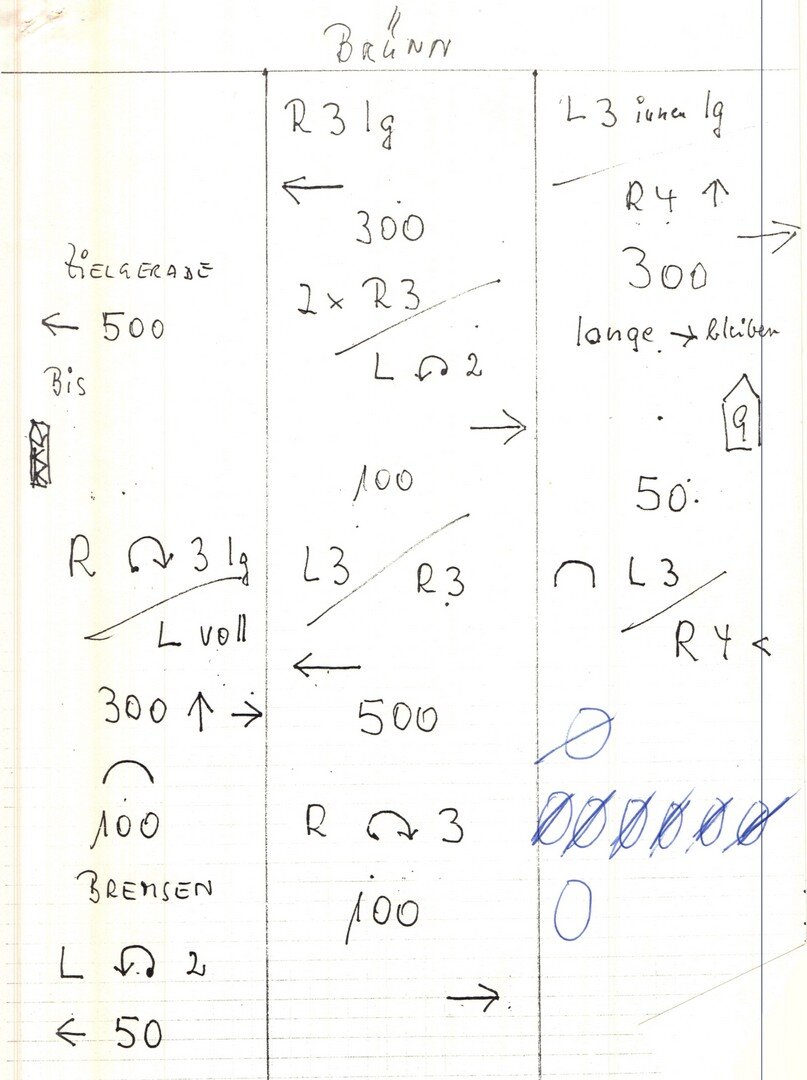 BRÜNN
ZIELGERADE
← 500
Bis
R ↷ 3 lg
L voll
300 ↑ →
⌒
100
BREMSEN
L ↶ 2
← 50
R 3 lg
←
300
2 x R 3
L ↶ 2
→
100
L 3
R 3
←
500
R ↷ 3
100
→
L 3 innen lg
R 4 ↑
→
300
lange → bleiben
9
50
⌒ L 3
R 4 <